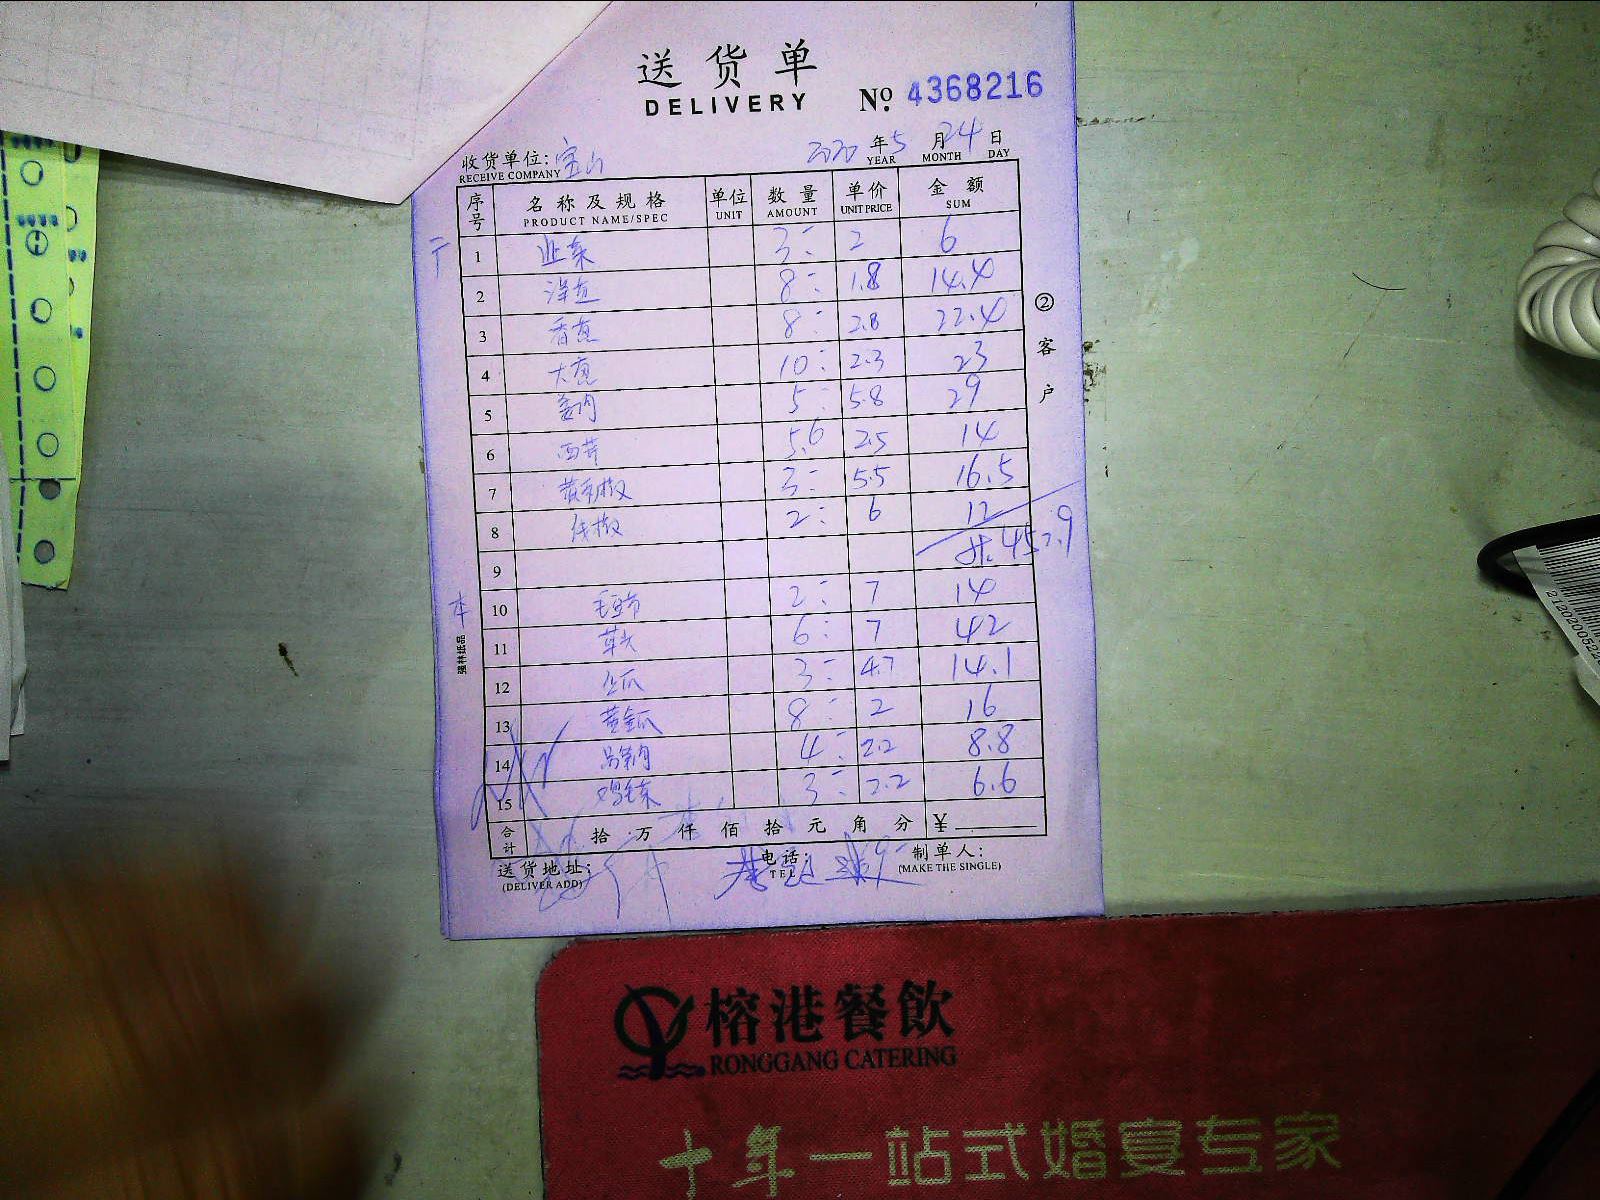 送货单
DELIVERY
No. 4368216
收货单位: 宝山 2020 年 5 月 24 日
RECEIVE COMPANY YEAR MONTH DAY
序号 名称及规格 单位 数量 单价 金额
PRODUCT NAME/SPEC UNIT AMOUNT UNIT PRICE SUM
1 韭菜 3 2 6
2 洋葱 8 1.8 14.4
3 香葱 8 2.8 22.4
4 大葱 10 2.3 23
5 姜肉 5 5.8 29
6 西芹 5.6 2.5 14
7 3 5.5 16.5
8 线椒 2 6 12
9 共 457.9
10 毛豆节 2 7 14
11 草头 6 7 42
12 3 4.7 14.1
13 黄金瓜 8 2 16
14 4 2.2 8.8
15 鸡毛菜 3 2.2 6.6
合计 拾 万 仟 佰 拾 元 角 分 ¥
送货地址: 电话: 制单人:
(DELIVER ADD) TEL (MAKE THE SINGLE)
②客户
强林纸品
榕港餐飲
RONGGANG CATERING
十年一站式婚宴专家